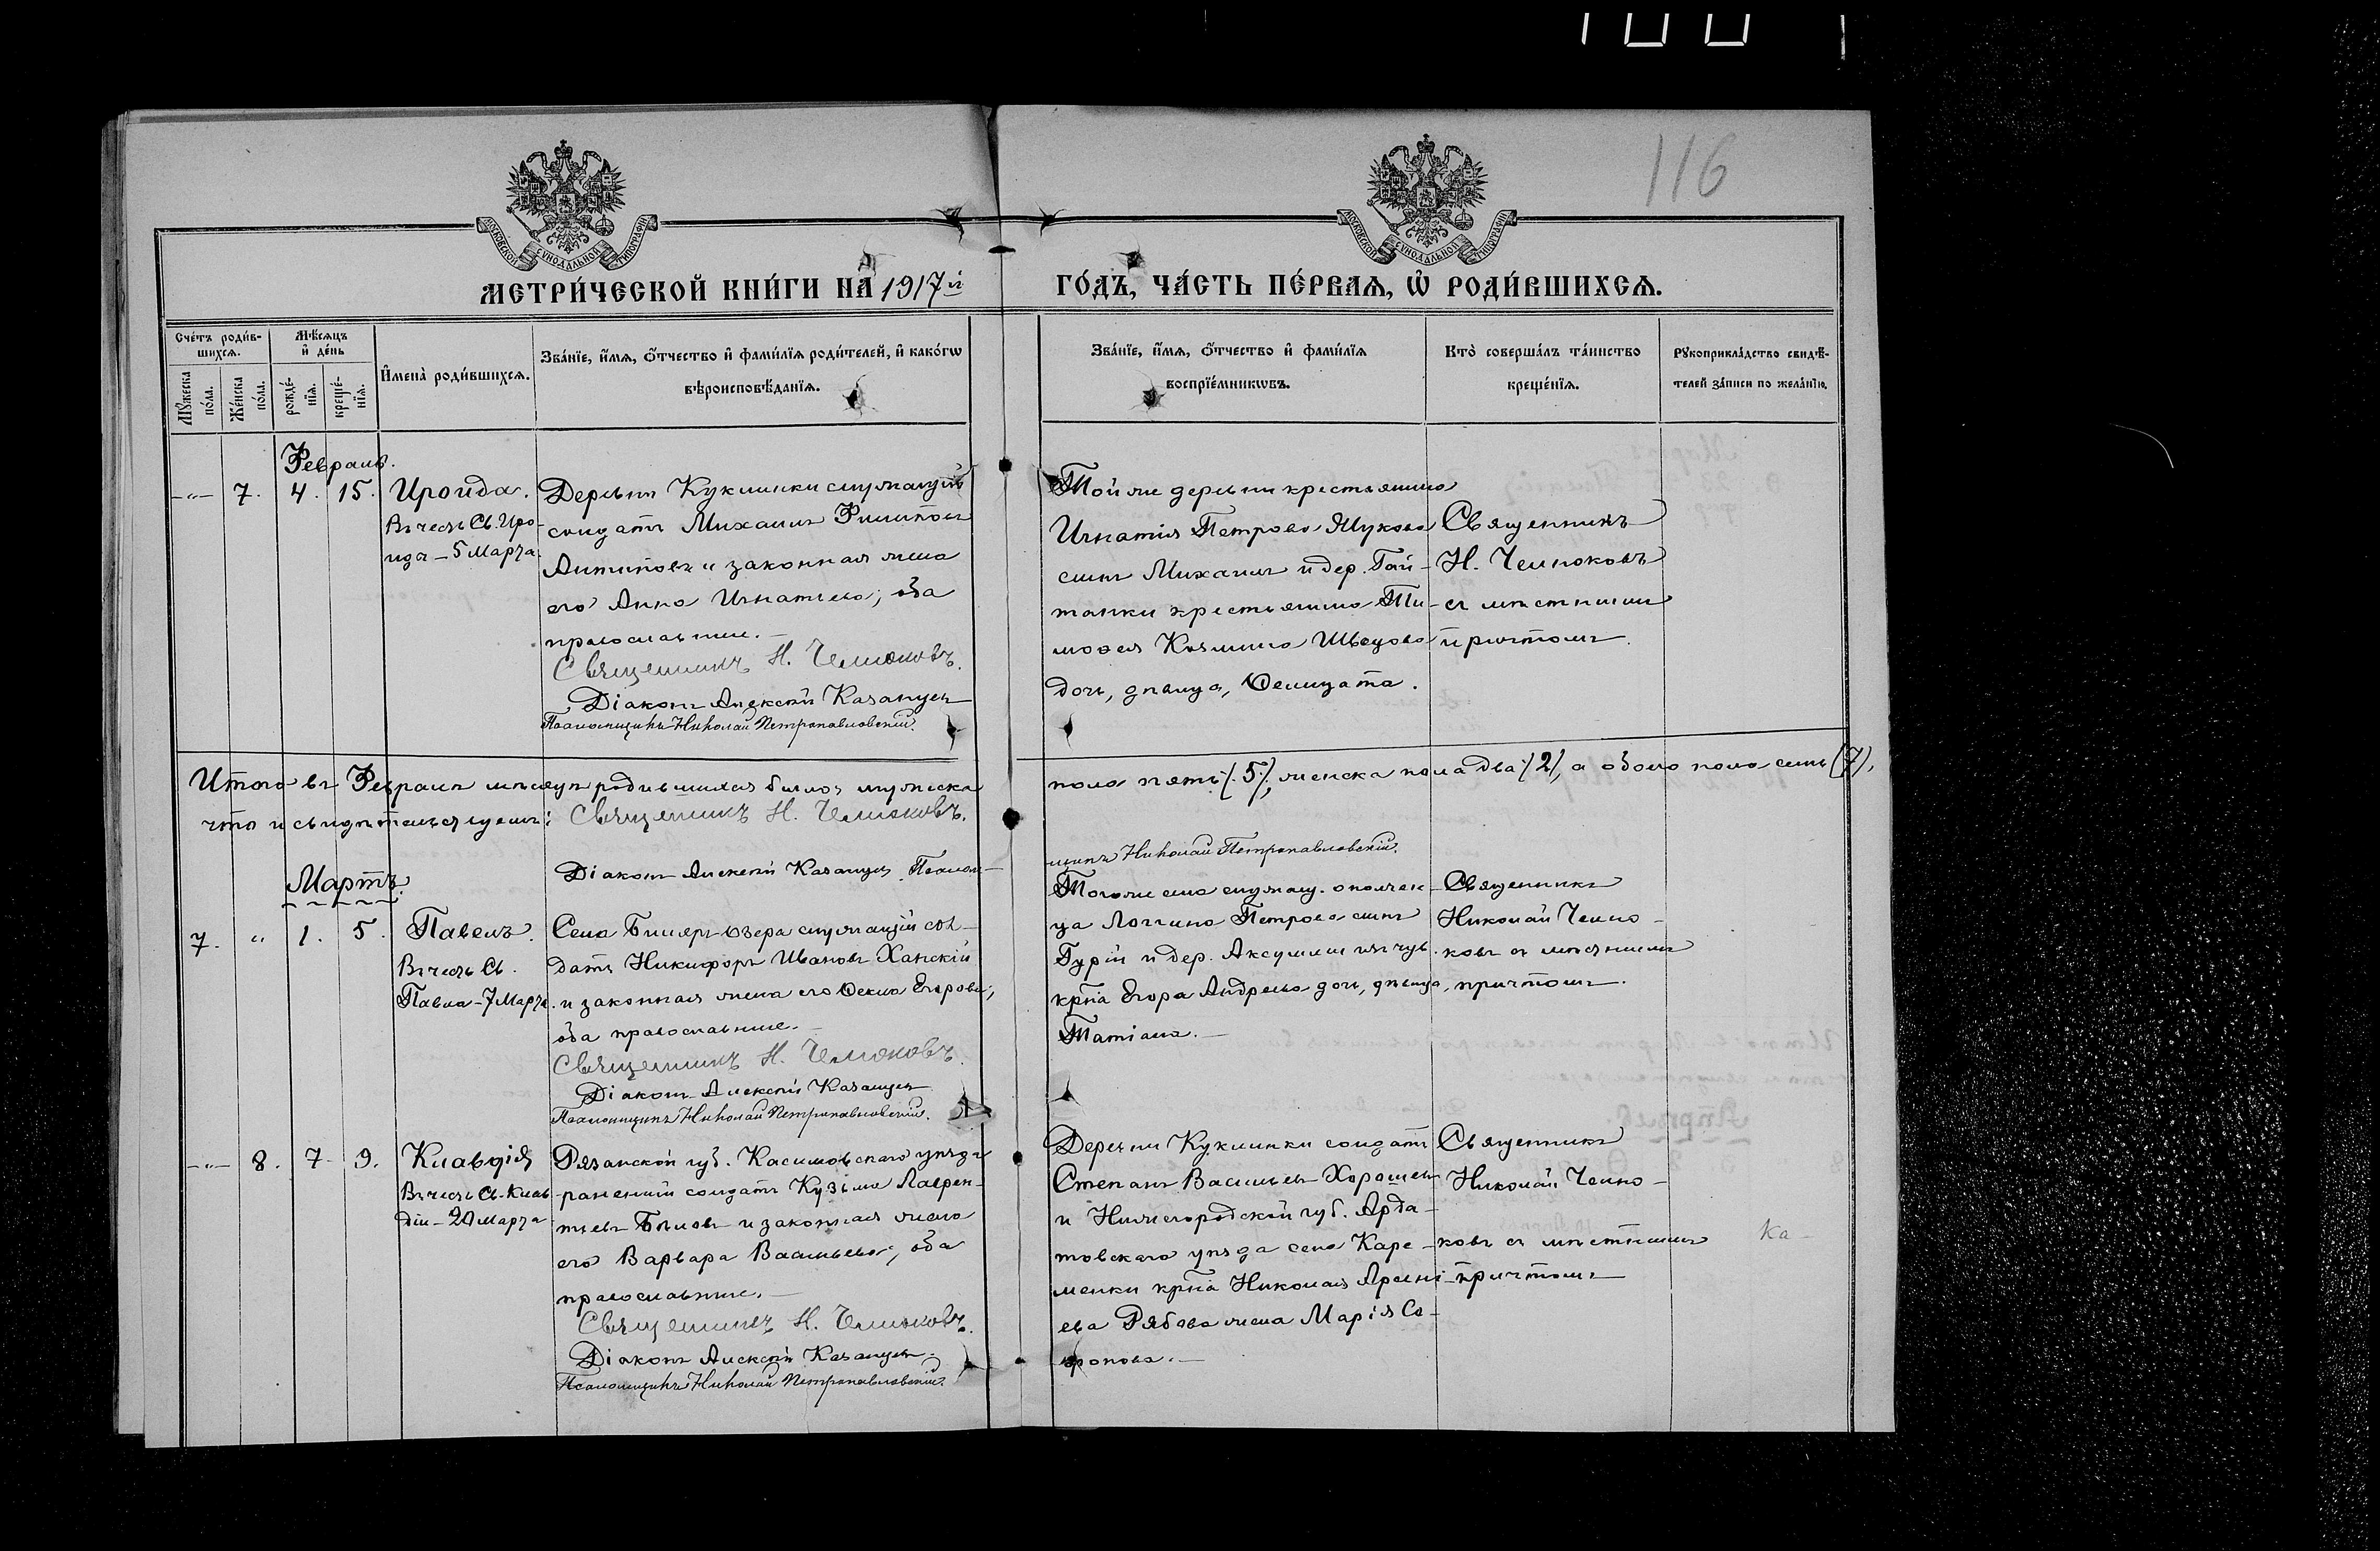 116
МОСКОВСКОЙ СѴНОДАЛЬНОЙ ТИПОГРАФІИ
МОСКОВСКОЙ СѴНОДАЛЬНОЙ ТИПОГРАФІИ
МЕТРИ́ЧЕСКОЙ КНИ́ГИ НА 1917й ГО́ДЪ, ЧА́СТЬ ПЕ́РВАѦ, Ѡ҆ РОДИ́ВШИХСѦ.
Сче́тъ роди́в-
шихсѧ.
Мꙋ́жеска по́ла.
Же́нска по́ла.
Мѣ́сѧцъ и҆ де́нь
рожде́-
нїѧ.
креще́-
нїѧ.
И҆мена̀ роди́вшихсѧ.
Зва́нїе, и҆́мѧ, ѻ҆́тчество и҆ фами́лїѧ роди́телей, и҆ како́гѡ
вѣроисповѣ́данїѧ.
Зва́нїе, и҆́мѧ, ѻ҆́тчество и҆ фами́лїѧ
воспрїе́мникѡвъ.
Кто̀ соверша́лъ та́инство
креще́нїѧ.
Рꙋкоприкла́дство свидѣ́-
телей за́писи по жела́нїю.
Февраль.
-"- 7. 4. 15.
Ироида.
Въ честь Св. Иро-
иды – 5 Марта.
Деревни Куклинки служащій
солдатъ Михаилъ Филиппов
Антиповъ и законная жена
его Анна Игнатьева; оба
православные.
Священникъ Н. Чемоковъ.
Діаконъ Алексѣй Казанцев
Псаломщикъ Николай Петропавловскій.
Той же деревни крестьянина
Игнатія Петрова Жукова
сынъ Михаилъ и дер. Гай-
танки крестьянина Ти-
моѳея Козьмина Швецова
дочь, дѣвица, Ѳелицата.
Священникъ
Н. Чемоковъ
съ мѣстнымъ
причтомъ.
Итого въ Февралѣ мѣсяцѣ родившихся было: мужеска
пола пять (5), женска пола два (2), а обоего пола семь (7),
что и свидѣтельствуемъ: Священникъ Н. Чемоковъ.
Діаконъ Алексѣй Казанцев Псалом-
щикъ Николай Петропавловскій.
Мартъ.
7. " 1. 5.
Павелъ.
Въ честь Св.
Павла – 7 Марта.
Села Биляръ-Озера служащій сол-
датъ Никифоръ Ивановъ Ханскій
и законная жена его Ѳекла Егорова;
оба православные.
Священникъ Н. Чемоковъ.
Діаконъ Алексѣй Казанцев
Псаломщикъ Николай Петропавловскій.
Того же села служащ. ополчен-
ца Логгина Петрова сынъ
Гурій и дер. изъ чув.
крна Егора Андреева дочь, дѣвица,
Татіана.
Священникъ
Николай Чемо-
ковъ съ мѣстнымъ
причтомъ.
-"- 8. 7. 9.
Клавдія
Въ честь Св. Клав-
діи – 20 Марта
Рязанской губ. Касимовскаго уѣзда
раненый солдатъ Кузьма Лаврен-
тьевъ Бѣловъ и законная жена
его Варвара Васильева; оба
православные.
Священникъ Н. Чемоковъ.
Діаконъ Алексѣй Казанцев.
Псаломщикъ Николай Петропавловскій.
Деревни Куклинки солдатъ
Степанъ Васильевъ Хорошев
и Нижегородской губ. Арда-
товскаго уѣзда села Каре-
менки крна Николая Арсені-
ева Рябова жена Марія Со-
фронова.
Священникъ
Николай Чемо-
ковъ съ мѣстнымъ
причтомъ
Ка-